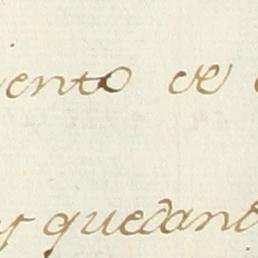 iento de
y quedan